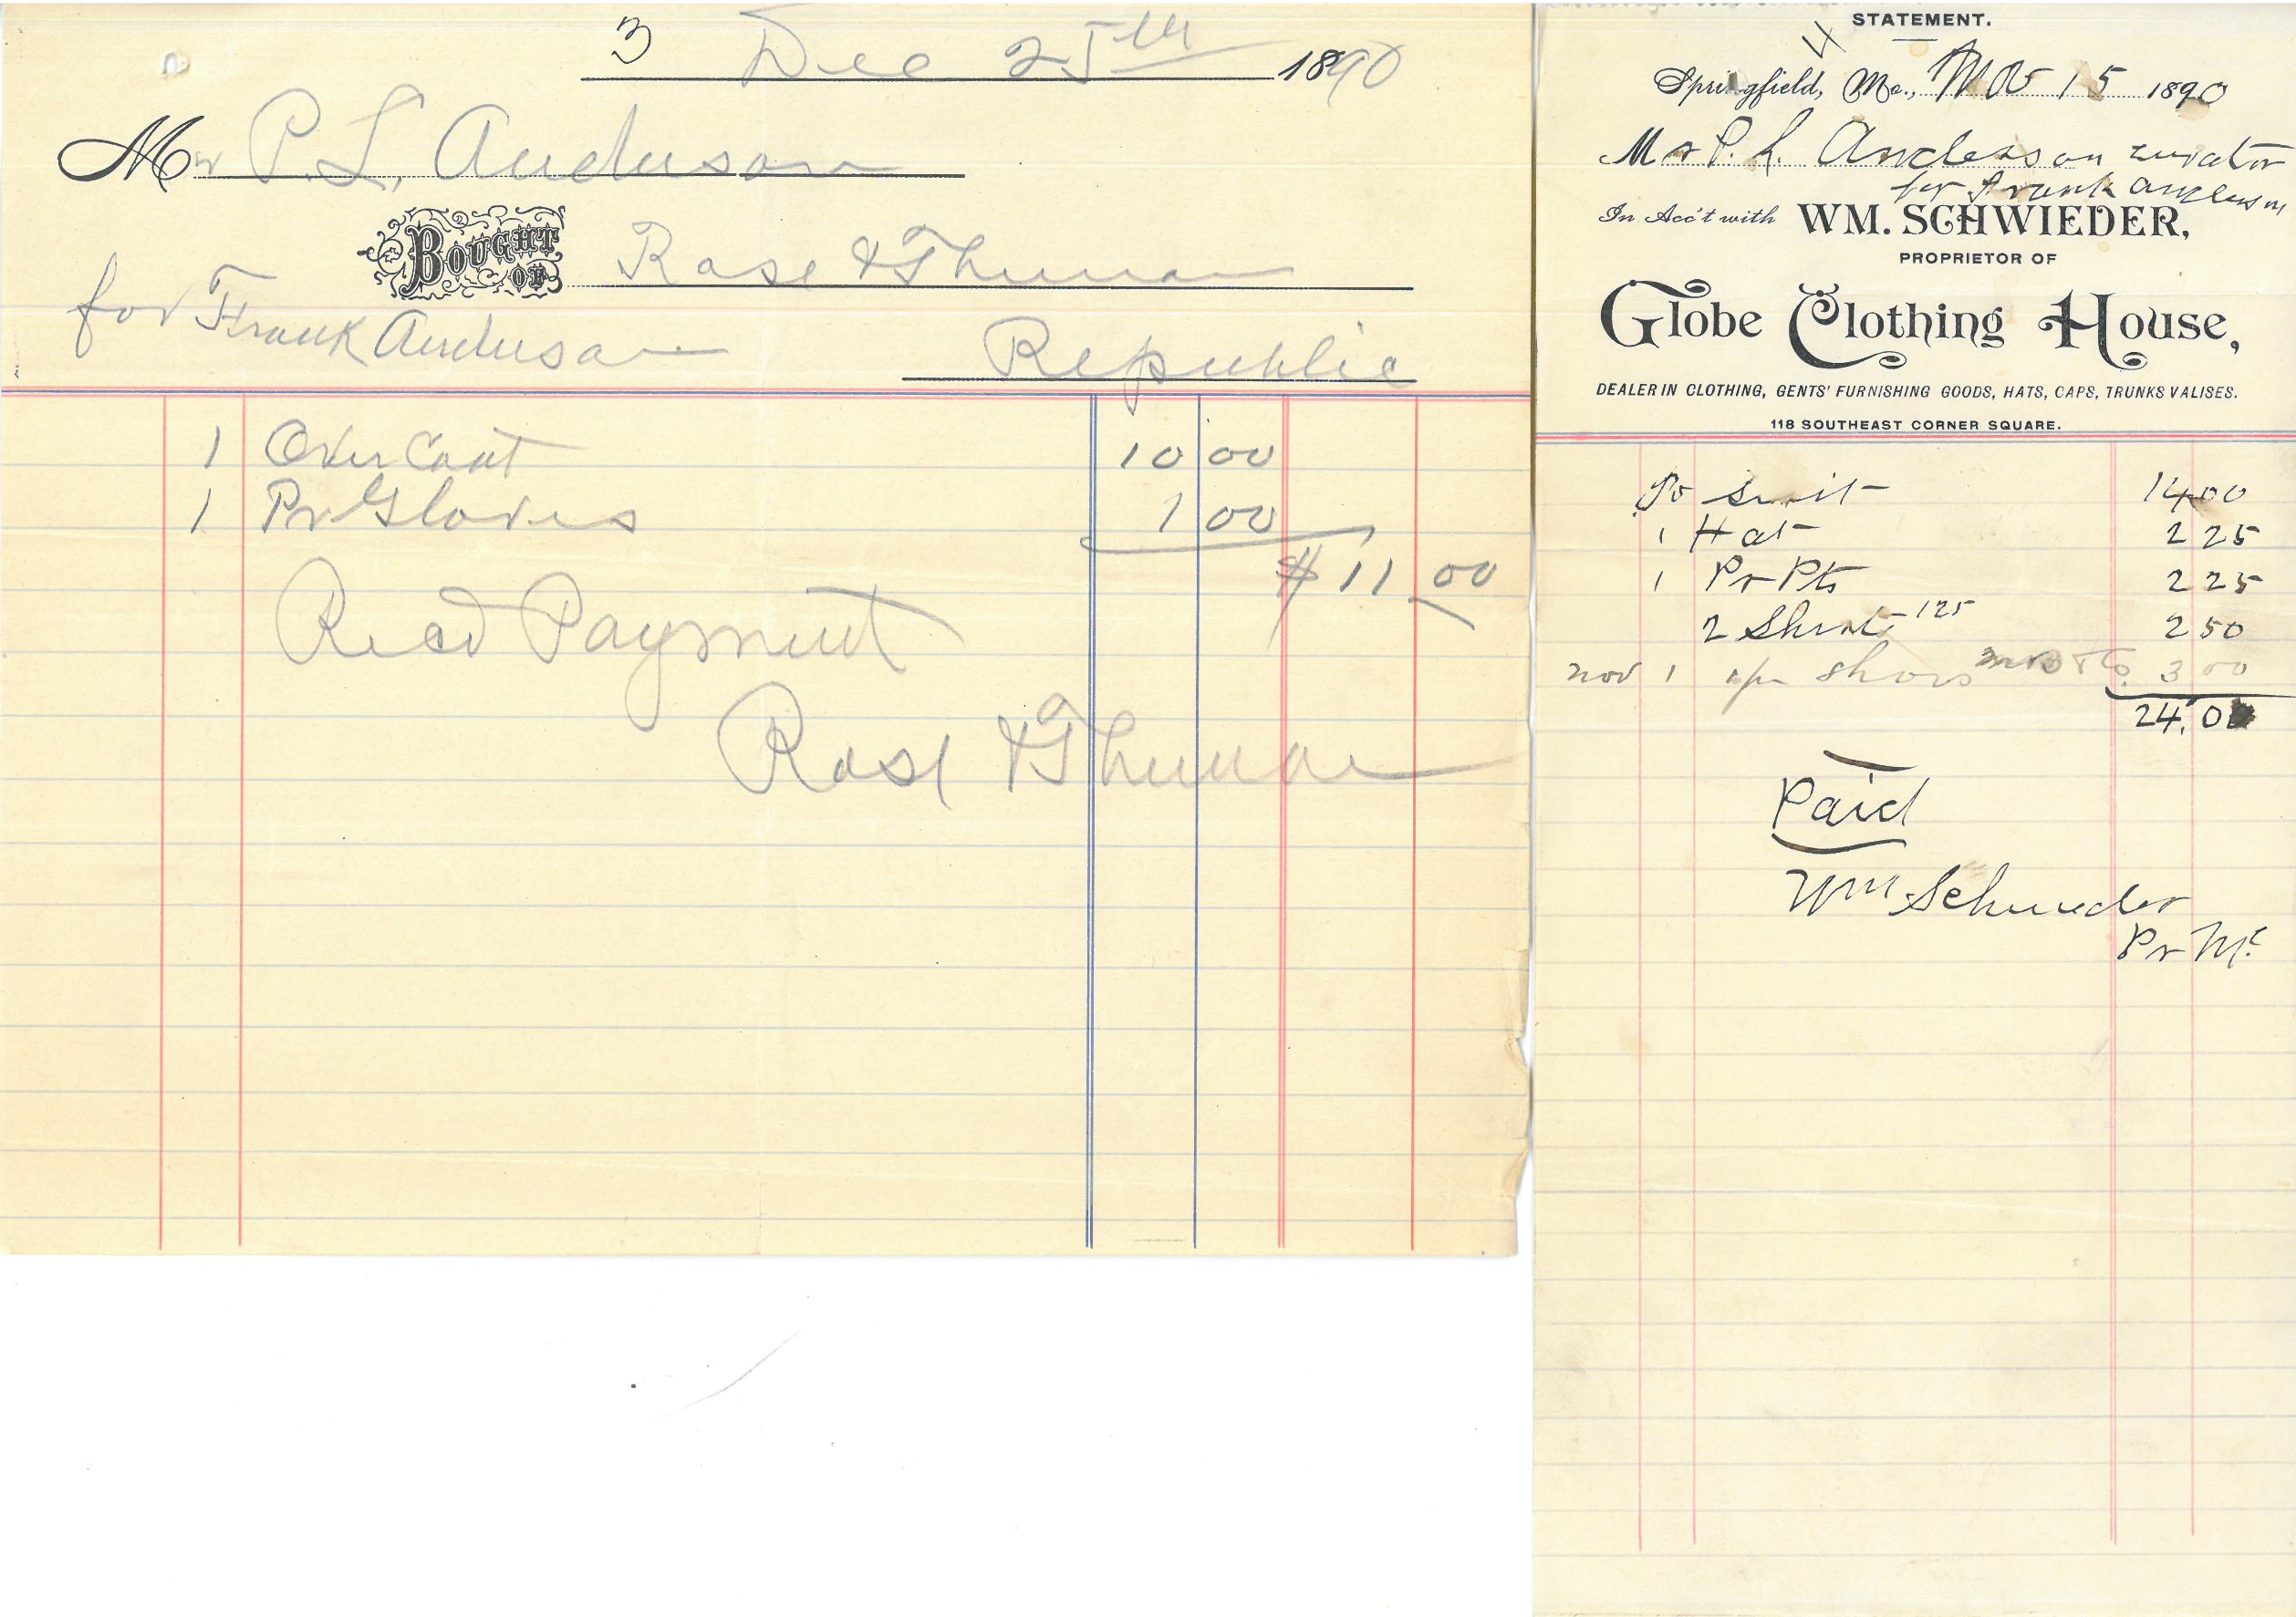 3 Dec 25th 1890
Mr P. L. Anderson
BOUGHT OF Rose & Thurman
for Frank Anderson
Republic
1 Over Coat 10 00
1 Pr Gloves 1 00
$ 11 00
Recd Payment
Rose & Thurman
STATEMENT.
4
Springfield, Mo., Nov 15 1890
Mr P. L. Anderson curator
for Frank Anderson
In Acc't with WM. SCHWIEDER,
PROPRIETOR OF
Globe Clothing House,
DEALER IN CLOTHING, GENTS' FURNISHING GOODS, HATS, CAPS, TRUNKS VALISES.
118 SOUTHEAST CORNER SQUARE.
To Suit 14 00
1 Hat 2 25
1 Pr Pts 2 25
2 Shirts 125 2 50
nov 1 1 pr shoes 3 00
24.00
Paid
Wm Schwieder
Pr Mc